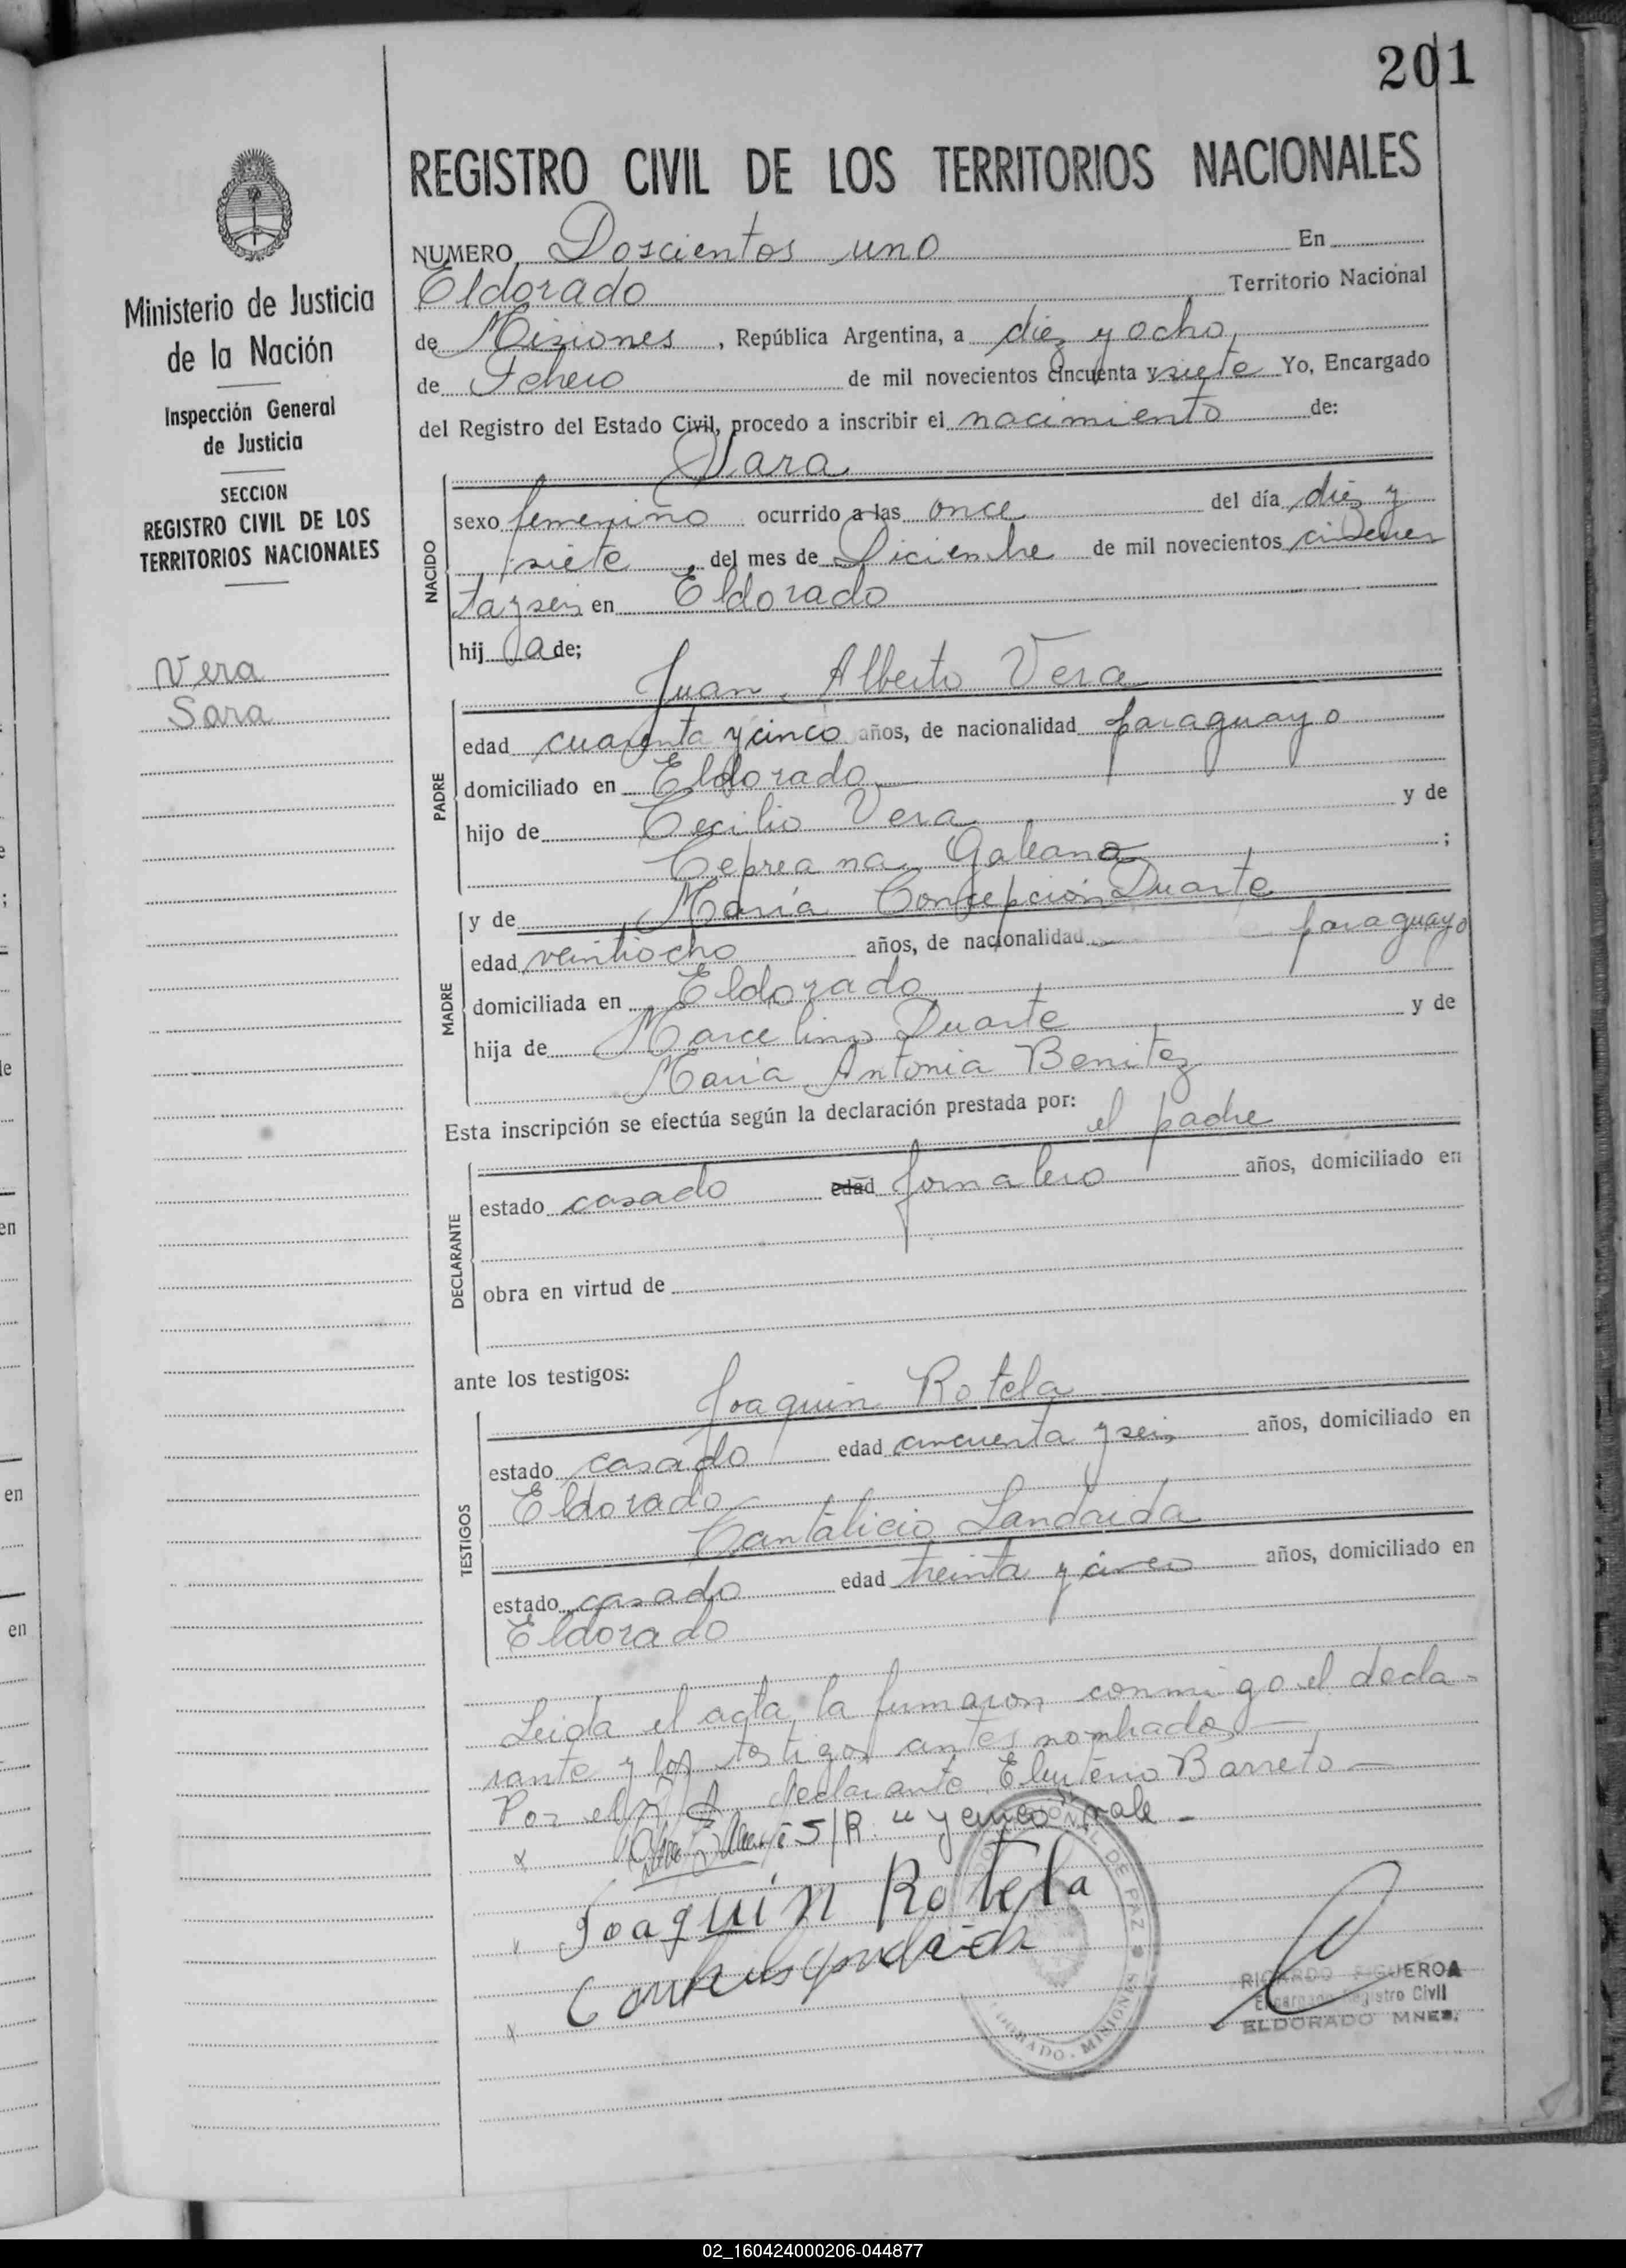 201
REGISTRO CIVIL DE LOS TERRITORIOS NACIONALES
Ministerio de Justicia
de la Nación
Inspección General
de Justicia
SECCION
REGISTRO CIVIL DE LOS
TERRITORIOS NACIONALES
Vera
Sara
NUMERO Doscientos uno En
Eldorado Territorio Nacional
de Misiones, República Argentina, a diez y ocho,
de Febrero de mil novecientos cincuenta y siete Yo, Encargado
del Registro del Estado Civil, procedo a inscribir el nacimiento de:
Sara
NACIDO
sexo femenino ocurrido a las once del día diez y
siete del mes de Diciembre de mil novecientos cincuen
ta y seis en Eldorado
hij a de;
Juan Alberto Vera
PADRE
edad cuarenta y cinco años, de nacionalidad paraguayo
domiciliado en Eldorado
hijo de Cecilio Vera y de
Cepreana Galeano ;
MADRE
y de María Concepción Duarte
edad veintiocho años, de nacionalidad paraguayo
domiciliada en Eldorado
hija de Marcelino Duarte y de
María Antonia Benitez
Esta inscripción se efectúa según la declaración prestada por:
el padre
DECLARANTE
estado casado edad jornalero años, domiciliado en
obra en virtud de
ante los testigos:
Joaquin Rotela
TESTIGOS
estado casado edad cincuenta y seis años, domiciliado en
Eldorado
Cantalicio Landaida
estado casado edad treinta y cinco años, domiciliado en
Eldorado
Leida el acta la firmaron conmigo el decla-
rante y los testigos antes nombrados
Por el declarante Eleuterio Barreto
S/R. "y cinco" vale
Joaquin Rotela
DE PAZ
DORADO - MISIONES
RICARDO FIGUEROA
Encargado Registro Civil
ELDORADO MNES.
02_160424000206-044877